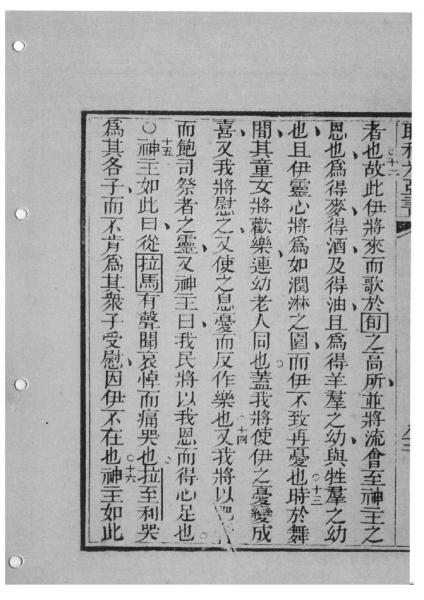 耶利米亞書
十二
者也故此伊將來而歌於旬之高所並將流會至神主之
恩也為得麥得酒及得油且為得羊羣之幼與牲羣之幼
十三
也且伊靈心將為如潤淋之園而伊不致再憂也時於舞
間其童女將歡樂連幼老人同也蓋我將使伊之憂變成
十四
喜又我將慰之又使之息憂而反作樂也又我將以肥
而飽司祭者之靈又神主曰我民將以我恩而得心足也
十五
○神主如此曰從拉馬有聲聞哀悼而痛哭也拉至利哭
為其各子而不肯為其衆子受慰因伊不在也神主如此
十六